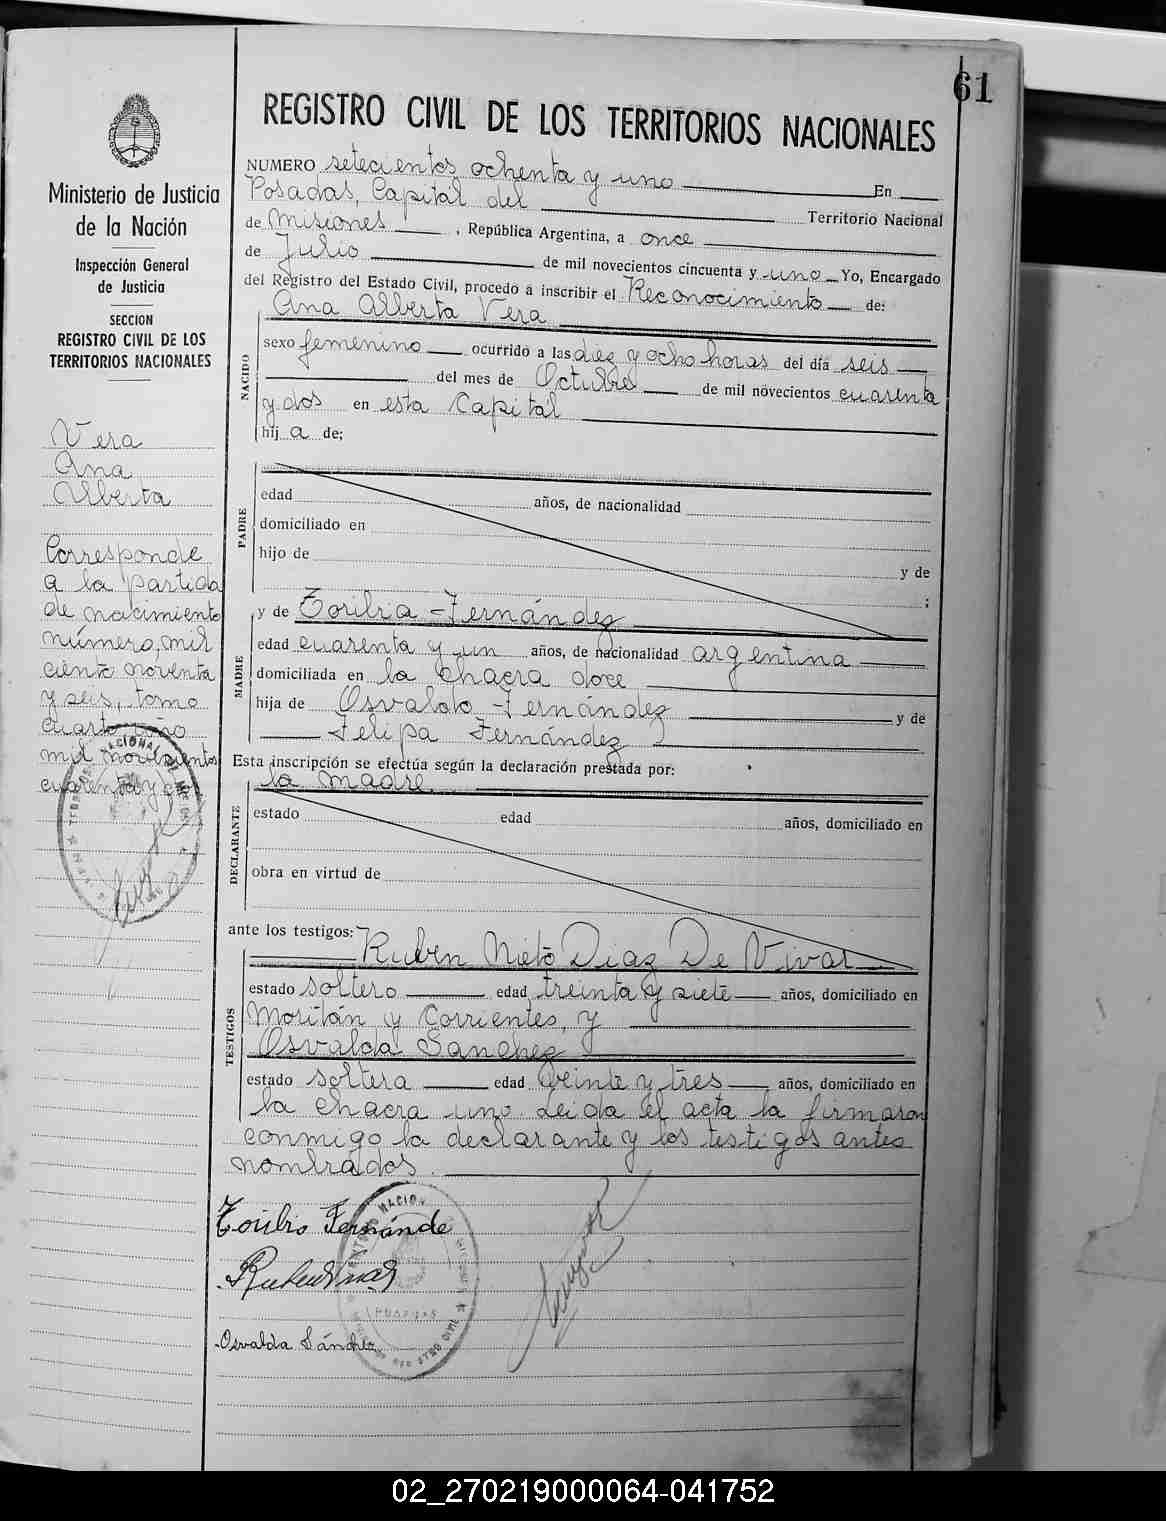 61
REGISTRO CIVIL DE LOS TERRITORIOS NACIONALES
Ministerio de Justicia
de la Nación
Inspección General
de Justicia
SECCION
REGISTRO CIVIL DE LOS
TERRITORIOS NACIONALES
Vera
Ana
Alberta
Corresponde
a la partida
de nacimiento
número, mil
ciento noventa
y seis, tomo
cuarto año
mil novecientos
cuarenta y
NUMERO setecientos ochenta y uno En
Posadas, Capital del Territorio Nacional
de Misiones , República Argentina, a once
de Julio de mil novecientos cincuenta y uno Yo, Encargado
del Registro del Estado Civil, procedo a inscribir el Reconocimiento de:
Ana Alberta Vera
NACIDO
sexo femenino ocurrido a las diez y ocho horas del día seis
del mes de Octubre de mil novecientos cuarenta
y dos en esta Capital
hij a de;
PADRE
edad años, de nacionalidad
domiciliado en
hijo de y de
;
MADRE
y de Toribia Fernández
edad cuarenta y un años, de nacionalidad argentina
domiciliada en la chacra doce
hija de Osvaldo Fernández y de
Felipa Fernández
Esta inscripción se efectúa según la declaración prestada por:
la madre.
DECLARANTE
estado edad años, domiciliado en
obra en virtud de
ante los testigos: Ruben Nieto Diaz De Vivar
TESTIGOS
estado soltero edad treinta y siete años, domiciliado en
Moritán y Corrientes, y
Osvalda Sanchez
estado soltera edad veinte y tres años, domiciliado en
la chacra uno. Leida el acta la firmaron
conmigo la declarante y los testigos antes
nombrados.
Toribio Fernánde
Osvalda Sánchez
02_270219000064-041752